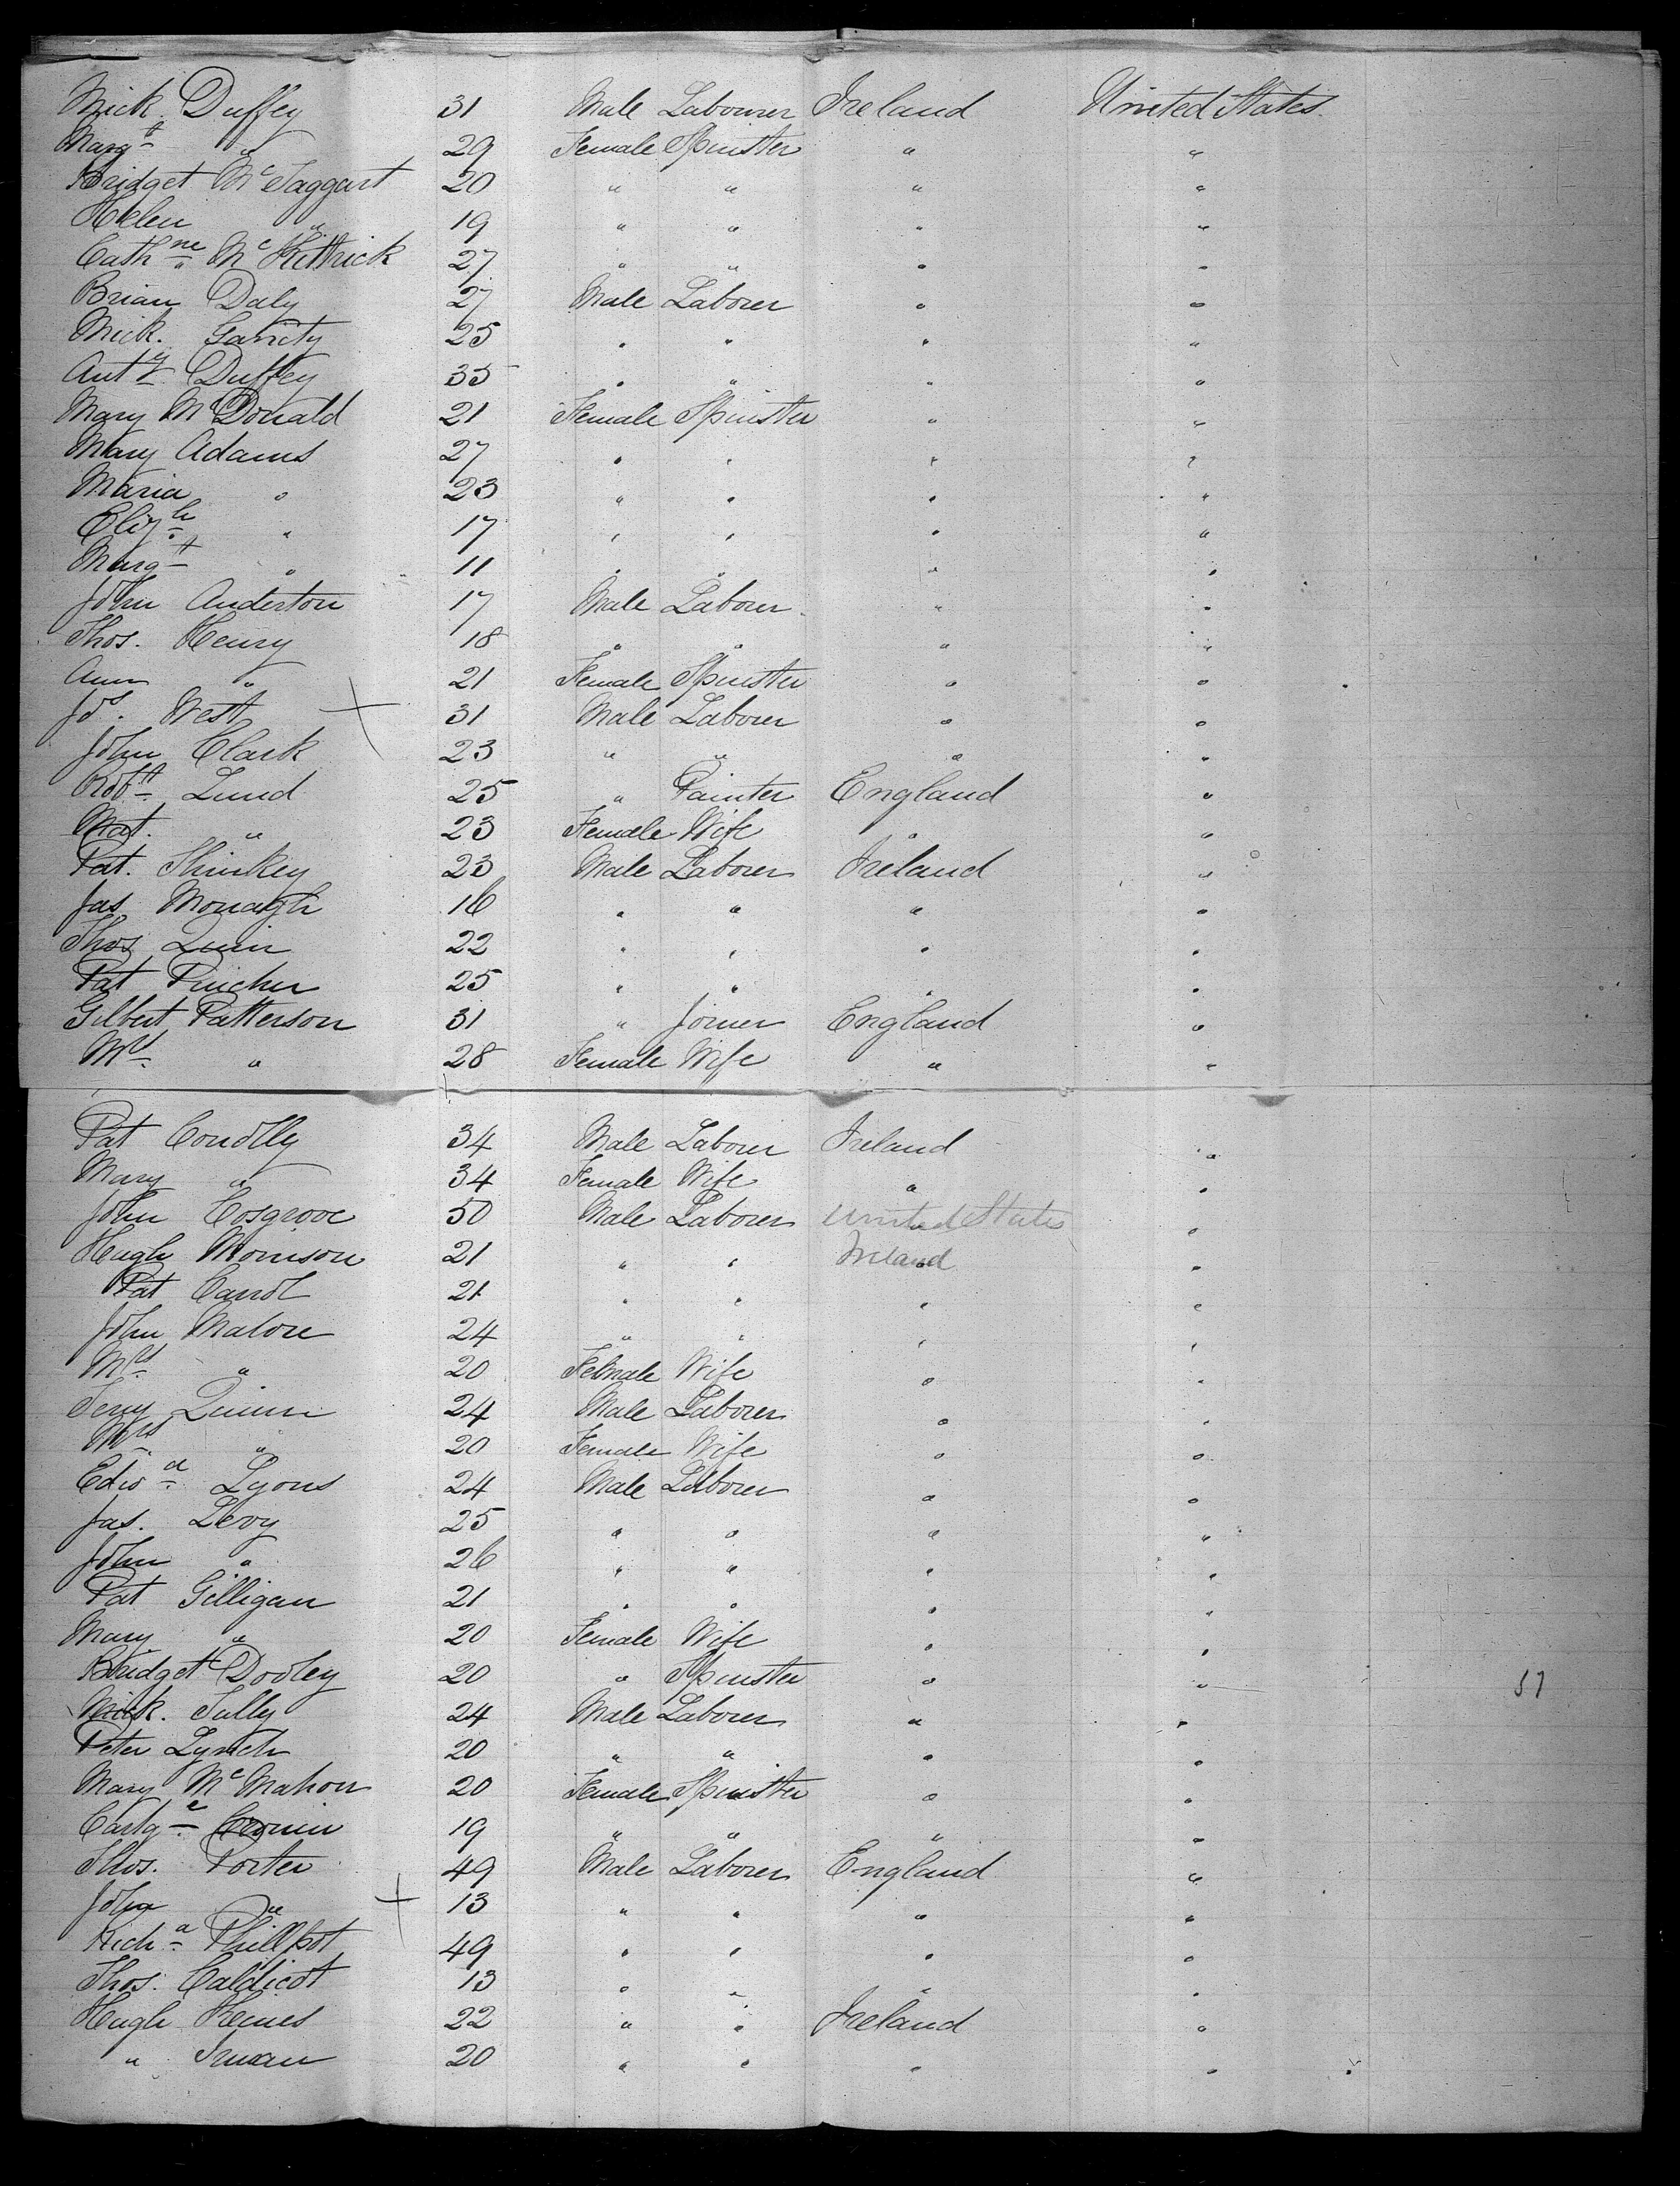 Mick. Duffey 31 Male Labourer Ireland United States.
Margt " 29 Female Spinster " "
Bridget McTaggart 20 " " " "
Helen " 19 " " " "
Cathne McKittrick 27 " " " "
Brian Daly 27 Male Laborer " "
Mick. Garrity 25 " " " "
Anty Duffey 35 " " " "
Mary McDonald 21 Female Spinster " "
Mary Adams 27 " " " "
Maria " 23 " " " "
Elizh " 17 " " " "
Margt " 11 " " " "
John Anderton 17 Male Laborer " "
Thos. Henry 18 " " " "
Ann " 21 Female Spinster " "
Jos. West 31 Male Laborer " "
John Clark 23 " " " "
Robt. Lund 25 " Painter England "
Mat. " 23 Female Wife " "
Pat. Shinkey 23 Male Laborer Ireland "
Jas Monagh 16 " " " "
Thos Quin 22 " " " "
Pat Pincher 25 " " " "
Gilbert Patterson 31 " Joiner England "
Mrs. " 28 Female Wife " "
Pat Conolly 34 Male Laborer Ireland "
Mary " 34 Female Wife " "
John Cosgrove 50 Male Laborer United States "
Hugh Morrison 21 " " Ireland "
Pat Carrol 21 " " " "
John Malone 24 " " " "
Mrs. " 20 Female Wife " "
Terry Quinn 24 Male Laborer " "
Mrs. " 20 Female Wife " "
Edwd. Lyons 24 Male Laborer " "
Jas. Levy 25 " " " "
John " 26 " " " "
Pat Gilligan 21 " " " "
Mary " 20 Female Wife " "
Bridget Dooley 20 " Spinster " " 51
Mick. Tully 24 Male Laborer " "
Peter Lynch 20 " " " "
Mary McMahon 20 Female Spinster " "
Cronin 19 " " " "
Thos. Porter 49 Male Laborer England "
John " 13 " " " "
Richd. Phillpot 49 " " " "
Thos. Caldicot 13 " " " "
Hugh 22 " " Ireland "
" 20 " " " "